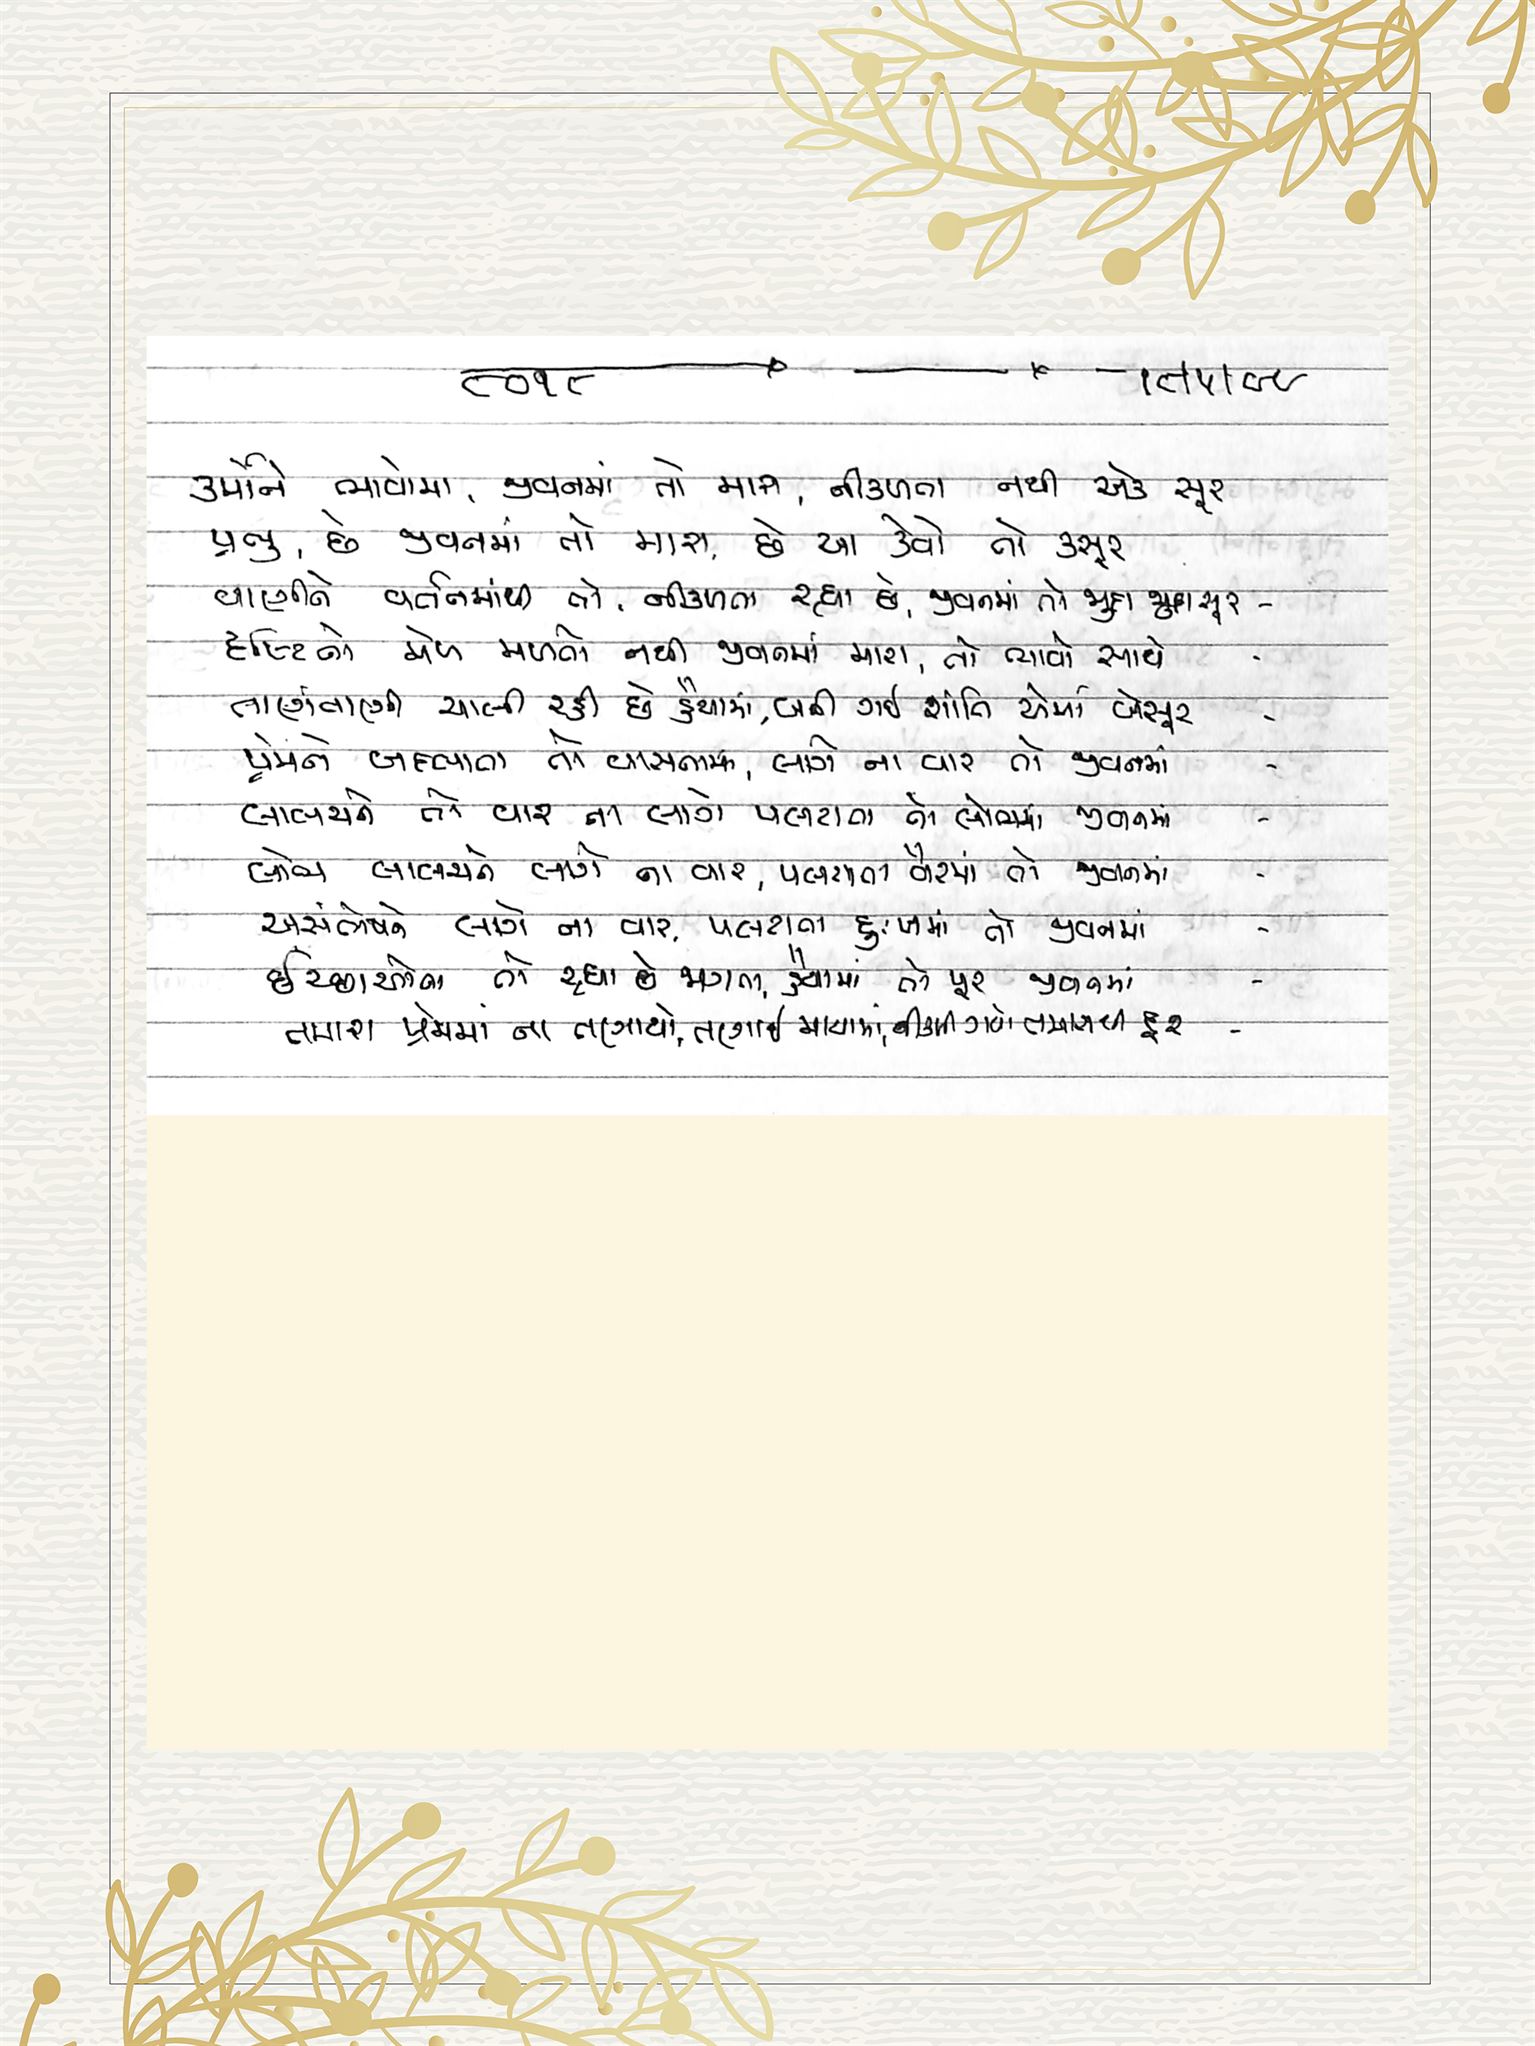 ૯૦૧૯ ૧૯।૫।૦૮
કર્મોને ભાવોમા, જીવનમાં તો મારા, નીકળતા નથી એક સૂર
પ્રભુ, છે જીવનમાં તો મારા, છે આ કેવો તો કસૂર
વાણીને વર્તનમાંથી તો, નીકળતા રહ્યા છે, જીવનમાં તો જુદા જુદા સૂર -
દૃષ્ટિનો મેળ મળતો નથી જીવનમાં મારા, તો ભાવો સાથે -
તાણંતાણી ચાલી રહી છે હૈયામાં, બની ગઈ શાંતિ એમાં બેસૂર -
પ્રેમને બદલાતા તો વાસનામાં, લાગે ના વાર તો જીવનમાં -
લાલચને તો વાર ના લાગે પલટાતા તો લોભમાં જીવનમાં -
લોભ લાલચને લાગે ના વાર, પલટાતા વૈરમાં તો જીવનમાં -
અસંતોષને લાગે ના વાર, પલટાતા દુઃખમાં તો જીવનમાં -
ઈચ્છાઓના તો રહ્યા છે જાગતા, હૈયામાં તો પૂર જીવનમાં -
તમારા પ્રેમમાં ના તણાયો, તણાઈ માયામાં, નીકળી ગયો તમારાથી દૂર -